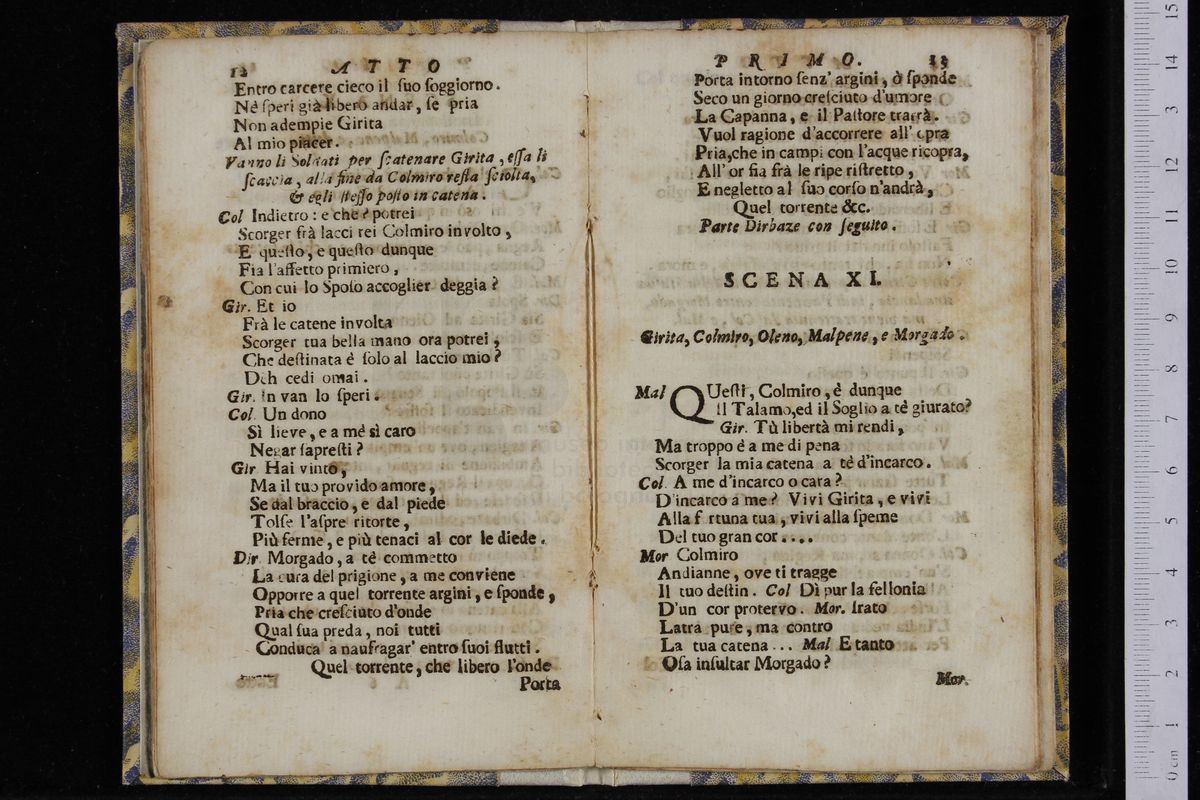 12 ATTO
Entro carcere cieco il ſuo ſoggiorno.
Nè ſperi già libero andar, ſe pria
Non adempie Girita
Al mio piacer.
Vanno li Soldati per ſcatenare Girita, eſſa li
ſcaccia, alla fine da Colmiro reſta ſciolta,
& egli ſteſſo poſto in catena.
Col Indietro: e che? potrei
Scorger frà lacci rei Colmiro involto,
E queſto, e queſto dunque
Fia l'affetto primiero,
Con cui lo Spoſo accoglier deggia?
Gir. Et io
Frà le catene involta
Scorger tua bella mano ora potrei,
Che deſtinata é ſolo al laccio mio?
Deh cedi omai.
Gir. In van lo ſperi.
Col. Un dono
Sì lieve, e a mè sì caro
Negar ſapreſti?
Gir Hai vinto,
Ma il tuo provido amore,
Se dal braccio, e dal piede
Tolſe l'aſpre ritorte,
Più ferme, e più tenaci al cor le diede.
Dir. Morgado, a tè commetto
La cura del prigione, a me conviene
Opporre a quel torrente argini, e ſponde,
Pria che creſciuto d'onde
Qual ſua preda, noi tutti
Conduca a naufragar' entro ſuoi flutti.
Quel torrente, che libero l'onde
Porta
PRIMO. 13
Porta intorno ſenz' argini, ò ſponde
Seco un giorno creſciuto d'umore
La Capanna, e il Paſtore trarrà.
Vuol ragione d'accorrere all' opra
Pria, che in campi con l'acque ricopra,
All' or ſia frà le ripe riſtretto,
E negletto al ſuo corſo n'andrà,
Quel torrente &c.
Parte Dirbaze con ſeguito.
SCENA XI.
Girita, Colmiro, Oleno, Malpene, e Morgado.
Mal QUeſti, Colmiro, è dunque
Il Talamo, ed il Soglio a tè giurato?
Gir. Tù libertà mi rendi,
Ma troppo è a me di pena
Scorger la mia catena a tè d'incarco.
Col. A me d'incarco o cara?
D'incarco a me? Vivi Girita, e vivi
Alla f rtuna tua, vivi alla ſpeme
Del tuo gran cor....
Mor Colmiro
Andianne, ove ti tragge
Il tuo deſtin. Col Dì pur la fellonia
D'un cor protervo. Mor. Irato
Latra pure, ma contro
La tua catena... Mal E tanto
Oſa inſultar Morgado?
Mor.